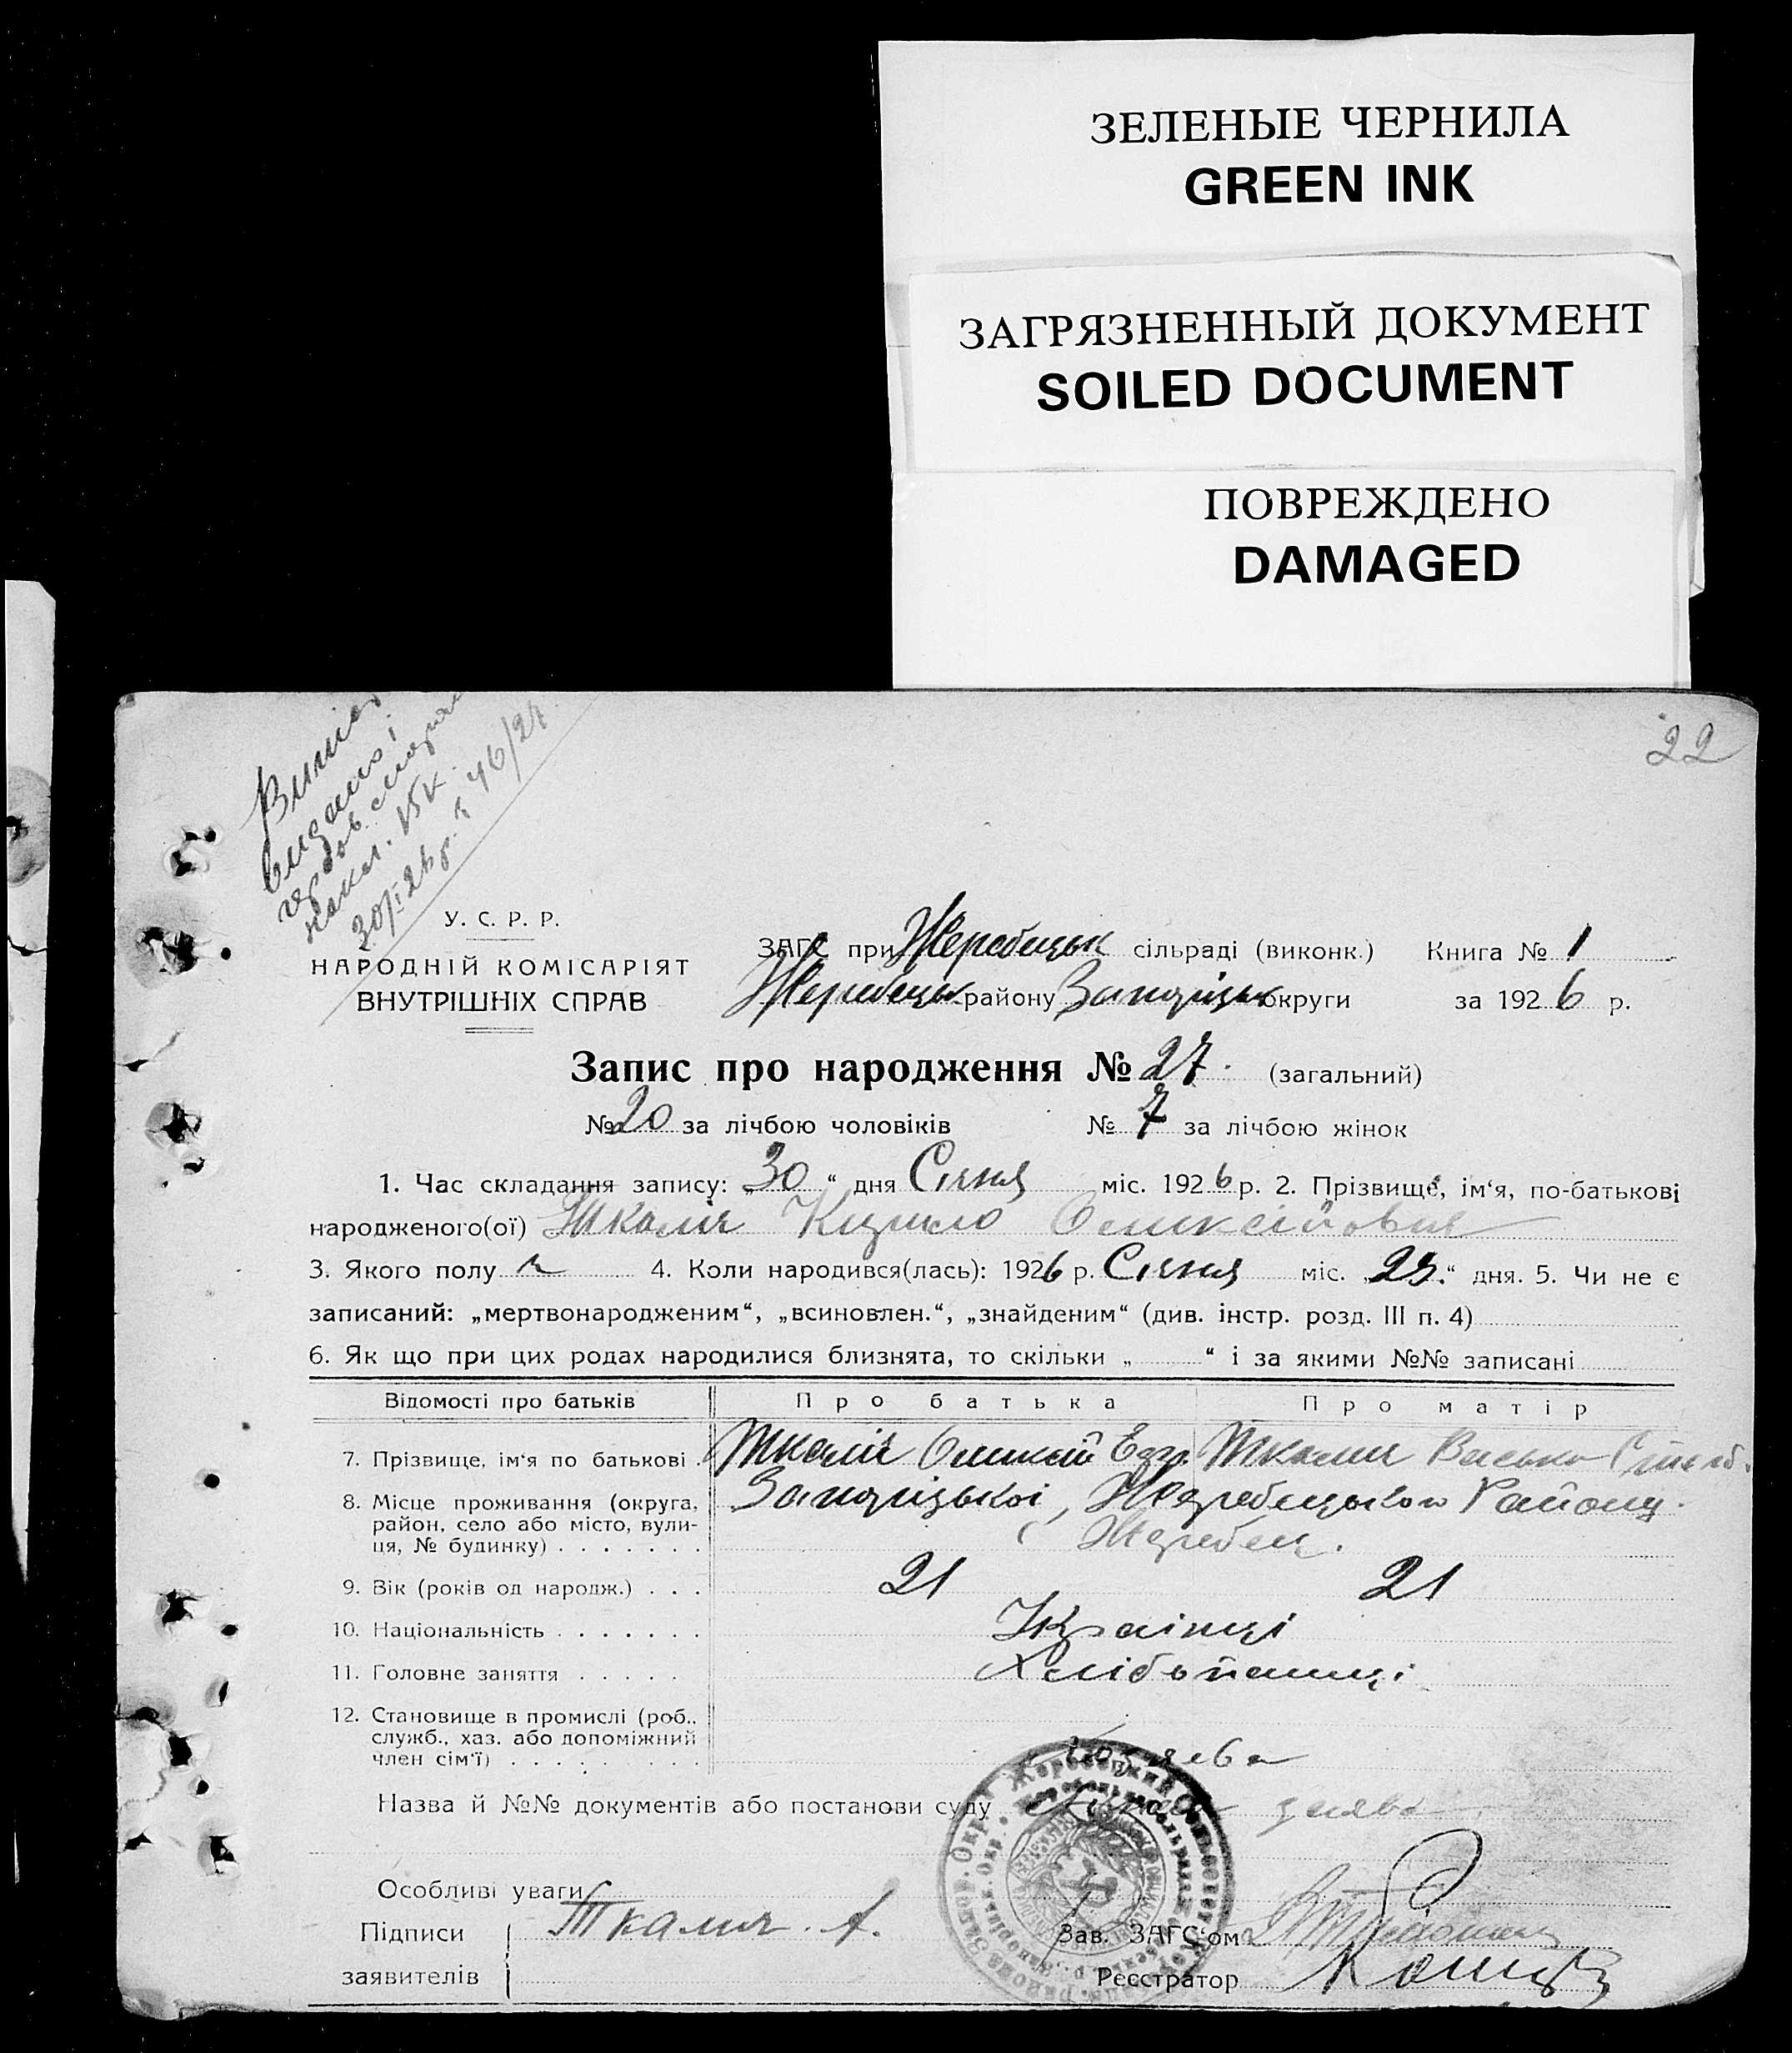 ЗЕЛЕНЫЕ ЧЕРНИЛА
GREEN INK
ЗАГРЯЗНЕННЫЙ ДОКУМЕНТ
SOILED DOCUMENT
ПОВРЕЖДЕНО
DAMAGED
22
видано і
46/24
У. С. Р. Р.
НАРОДНІЙ КОМІСАРІЯТ
ВНУТРІШНІХ СПРАВ
ЗАГС при Жеребецьк сільраді (виконк.) Книга № 1
Жеребецьк району Запоріцьк округи за 1926 р.
Запис про народження № 27. (загальний)
№ 20 за лічбою чоловіків № 7 за лічбою жінок
1. Час складання запису: „30“ дня Січня міс. 1926 р. 2. Прізвище, ім‘я, по-батькові
народженого(ої) Ткалич Кирило Олексійович
3. Якого полу ч 4. Коли народився(лась): 1926 р. Січня міс. „25.“ дня. 5. Чи не є
записаний: „мертвонародженим“, „всиновлен.“, „знайденим“ (див. інстр. розд. III п. 4)
6. Як що при цих родах народилися близнята, то скільки „ “ і за якими №№ записані
Відомості про батьків Про батька Про матір
7. Прізвище, ім‘я по батькові Ткалич Олексій Ткалич
8. Місце проживання (округа, Запоріцької, Жеребецького Району
район, село або місто, вули-
ця, № будинку) Жеребец.
9. Вік (років од народж.) 21 21
10. Національність Українці
11. Головне заняття Хлібопашці
12. Становище в промислі (роб.,
служб., хаз. або допоміжний
член сім‘ї)
Назва й №№ документів або постанови суду заява
Особливі уваги
Підписи Ткалич. А. Зав. ЗАГС‘ом
заявителів Реєстратор